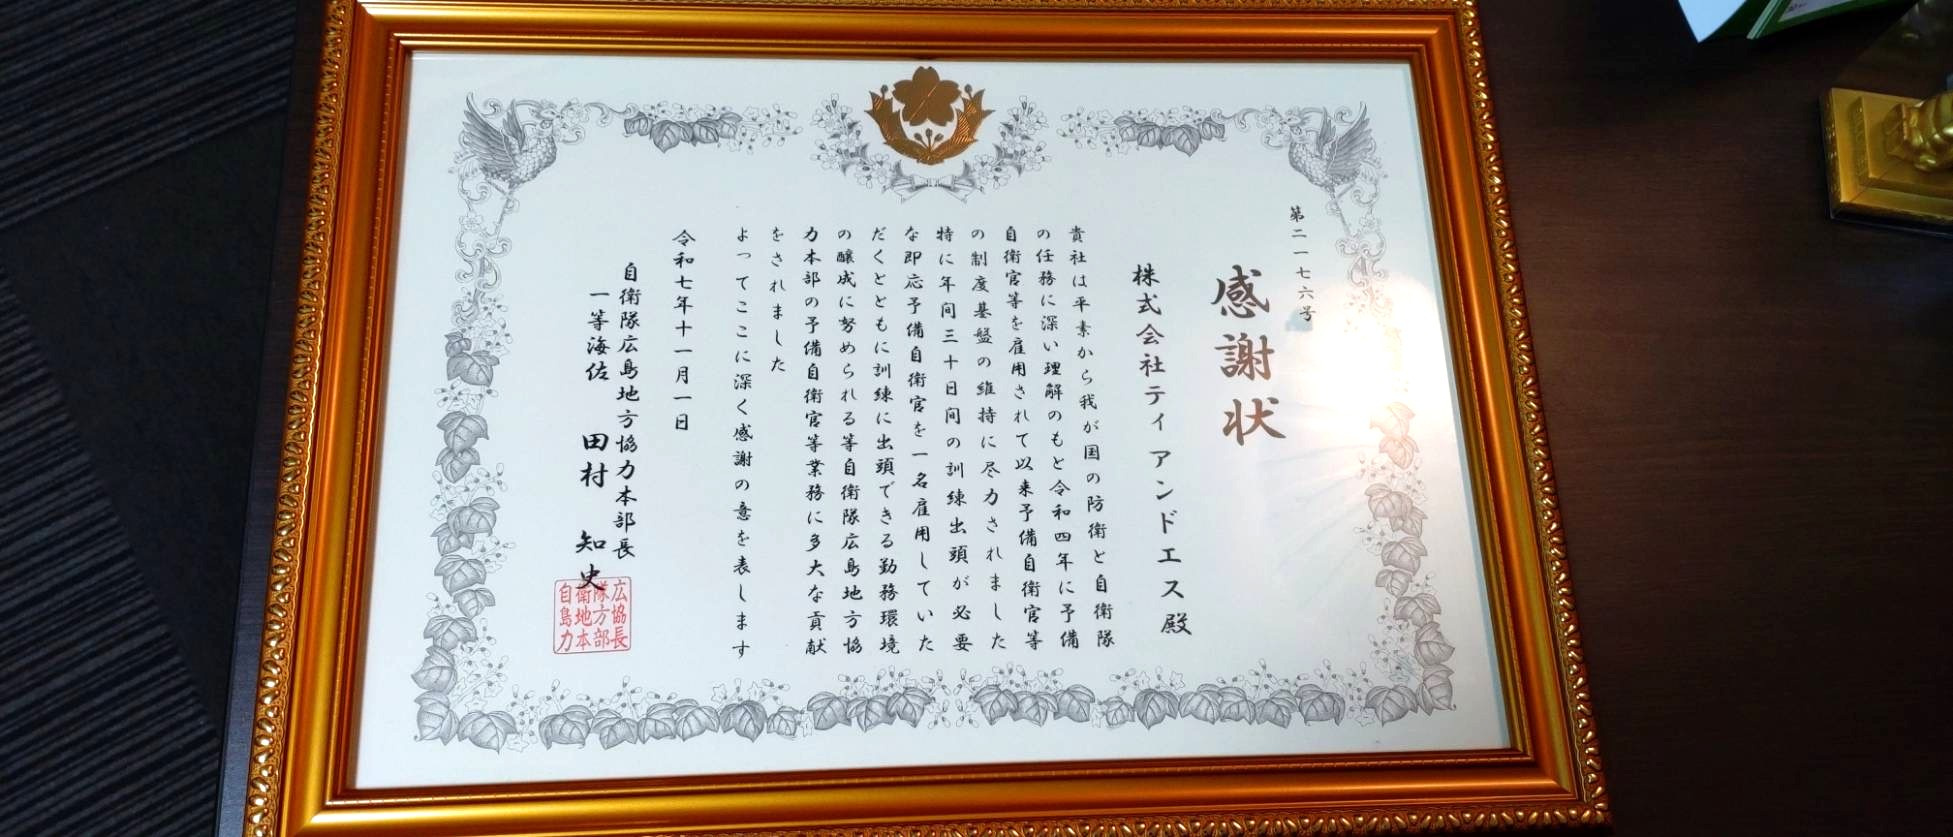 第二一七六号
感謝状
株式会社ティアンドエス殿
貴社は平素から我が国の防衛と自衛隊
の任務に深い理解のもと令和四年に予備
自衛官等を雇用されて以来予備自衛官等
の制度基盤の維持に尽力されました
特に年間三十日間の訓練出頭が必要
な即応予備自衛官を一名雇用していた
だくとともに訓練に出頭できる勤務環境
の醸成に努められる等自衛隊広島地方協
力本部の予備自衛官等業務に多大な貢献
をされました
よってここに深く感謝の意を表します
令和七年十一月一日
自衛隊広島地方協力本部長
一等海佐 田村 知史
自衛隊広
島地方協
力本部長